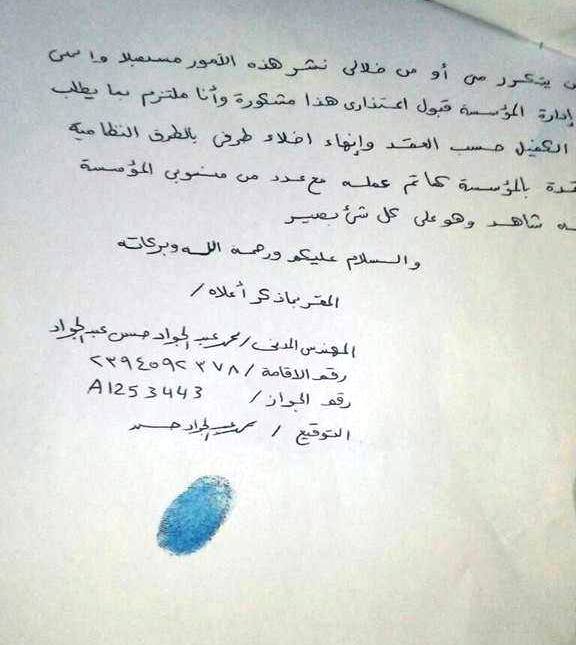 يتكرر مني أو من خلالي نشر هذه الأمور مستقبلا
إدارة المؤسسة قبول اعتذاري هذا مشكورة وأنا ملتزم بما يطلب
الكفيل حسب العقد وإنهاء اخلاء طرفي بالطرق النظامية
بالمؤسسة كما تم عمله مع عدد من منسوبي المؤسسة
شاهد وهو على كل شئ بصير
والسلام عليكم ورحمة الله وبركاته
المقر بماذكر أعلاه /
المهندس المدني / محمد عبد الجواد حسن عبد الجواد
رقم الاقامة / ٢٣٩٤٥٩٢٣٧٨
رقم الجواز / A1253443
التوقيع / محمد عبد الجواد حسن